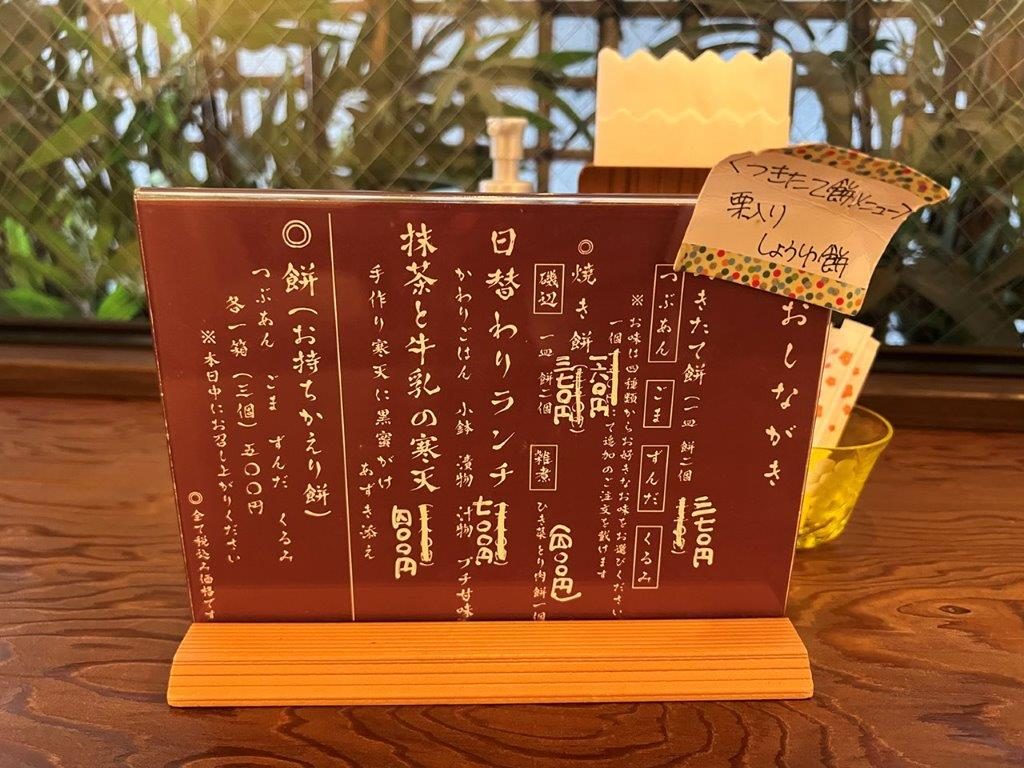 くつきたて餅メニュー
栗入り
しょうゆ餅
おしながき
きたて餅（一皿 餅二個 三七〇円
つぶあん ごま ずんだ くるみ
※お味は四種類からお好きなお味をお選びください
一個 一六〇円 で追加のご注文を戴けます
◎焼き餅 三七〇円
磯辺 一皿 餅二個 雑煮 ひき菜とり肉餅一個（四〇〇円）
日替わりランチ 七〇〇円
かわりごはん 小鉢 漬物 汁物 プチ甘味
抹茶と牛乳の寒天 四〇〇円
手作り寒天に黒蜜がけ あずき添え
◎餅（お持ちかえり餅）
つぶあん ごま ずんだ くるみ
各一箱（三個）五〇〇円
※本日中にお召し上がりください
◎全て税込み価格です